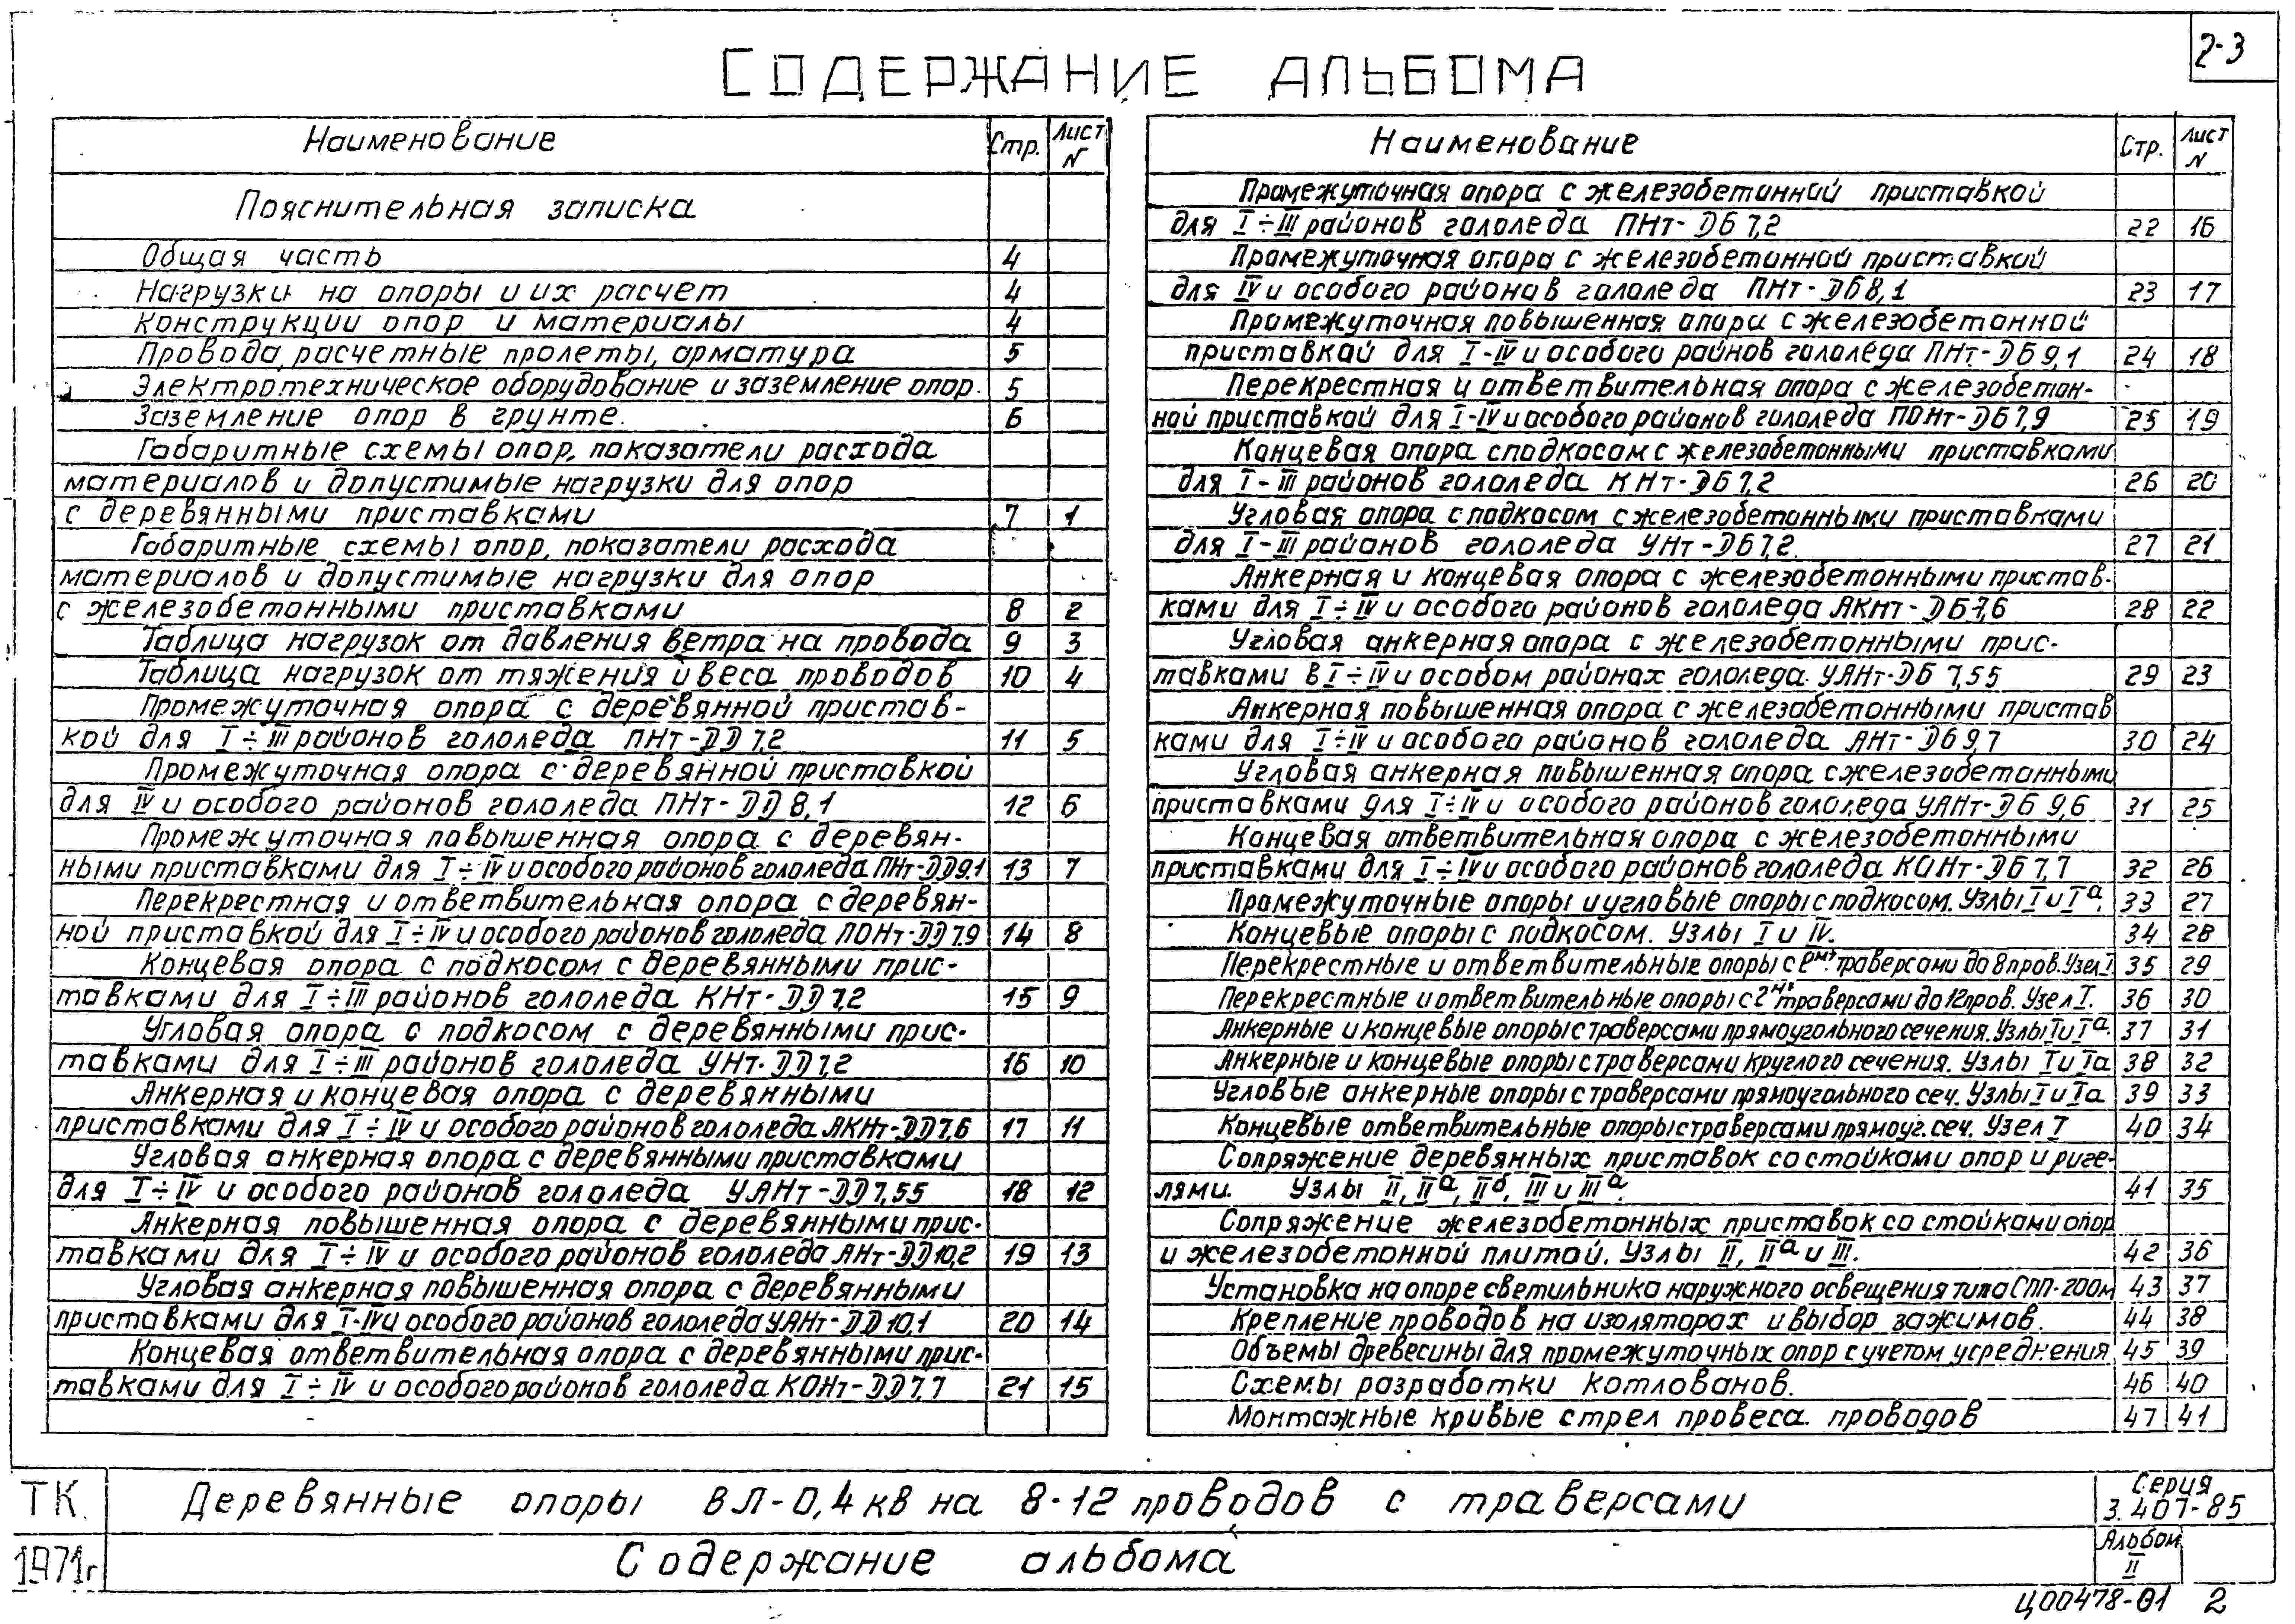 2-3
СОДЕРЖАНИЕ АЛЬБОМА
Наименование Стр. Лист N
Пояснительная записка
Общая часть 4
Нагрузки на опоры и их расчет 4
Конструкции опор и материалы 4
Провода, расчетные пролеты, арматура 5
Электротехническое оборудование и заземление опор. 5
Заземление опор в грунте. 6
Габаритные схемы опор, показатели расхода
материалов и допустимые нагрузки для опор
с деревянными приставками 7 1
Габаритные схемы опор, показатели расхода
материалов и допустимые нагрузки для опор
с железобетонными приставками 8 2
Таблица нагрузок от давления ветра на провода 9 3
Таблица нагрузок от тяжения и веса проводов 10 4
Промежуточная опора с деревянной пристав-
кой для I÷III районов гололеда ПНт-ДД 7,2 11 5
Промежуточная опора с деревянной приставкой
для IV и особого районов гололеда ПНт-ДД 8,1 12 6
Промежуточная повышенная опора с деревян-
ными приставками для I÷IV и особого районов гололеда ПНт-ДД9,1 13 7
Перекрестная и ответвительная опора с деревян-
ной приставкой для I÷IV и особого районов гололеда ПОНт-ДД 7,9 14 8
Концевая опора с подкосом с деревянными прис-
тавками для I÷III районов гололеда КНт-ДД 7,2 15 9
Угловая опора с подкосом с деревянными прис-
тавками для I÷III районов гололеда УНт-ДД 7,2 16 10
Анкерная и концевая опора с деревянными
приставками для I÷IV и особого районов гололеда АКНт-ДД 7,6 17 11
Угловая анкерная опора с деревянными приставками
для I÷IV и особого районов гололеда УАНт-ДД 7,55 18 12
Анкерная повышенная опора с деревянными прис-
тавками для I÷IV и особого районов гололеда АНт-ДД 10,2 19 13
Угловая анкерная повышенная опора с деревянными
приставками для I-IV и особого районов гололеда УАНт-ДД 10,1 20 14
Концевая ответвительная опора с деревянными прис-
тавками для I÷IV и особого районов гололеда КОНт-ДД 7,7 21 15
Наименование Стр. Лист N
Промежуточная опора с железобетонной приставкой
для I÷III районов гололеда ПНт-ДБ 7,2 22 16
Промежуточная опора с железобетонной приставкой
для IV и особого районов гололеда ПНт-ДБ 8,1 23 17
Промежуточная повышенная опора с железобетонной
приставкой для I-IV и особого районов гололеда ПНт-ДБ 9,1 24 18
Перекрестная и ответвительная опора с железобетон-
ной приставкой для I-IV и особого районов гололеда ПОНт-ДБ 7,9 25 19
Концевая опора с подкосом с железобетонными приставками
для I-III районов гололеда КНт-ДБ 7,2 26 20
Угловая опора с подкосом с железобетонными приставками
для I-III районов гололеда УНт-ДБ 7,2. 27 21
Анкерная и концевая опора с железобетонными пристав-
ками для I÷IV и особого районов гололеда АКНт-ДБ 7,6 28 22
Угловая анкерная опора с железобетонными прис-
тавками в I÷IV и особом районах гололеда УАНт-ДБ 7,55 29 23
Анкерная повышенная опора с железобетонными пристав
ками для I÷IV и особого районов гололеда АНт-ДБ 9,7 30 24
Угловая анкерная повышенная опора с железобетонными
приставками для I÷IV и особого районов гололеда УАНт-ДБ 9,6 31 25
Концевая ответвительная опора с железобетонными
приставками для I÷IV и особого районов гололеда КОНт-ДБ 7,7 32 26
Промежуточные опоры и угловые опоры с подкосом. Узлы I и Iа. 33 27
Концевые опоры с подкосом. Узлы I и IV. 34 28
Перекрестные и ответвительные опоры с траверсами до 8 пров. Узел I. 35 29
Перекрестные и ответвительные опоры с 2мя траверсами до 12 пров. Узел I. 36 30
Анкерные и концевые опоры с траверсами прямоугольного сечения. Узлы I и Iа. 37 31
Анкерные и концевые опоры с траверсами круглого сечения. Узлы I и Iа 38 32
Угловые анкерные опоры с траверсами прямоугольного сеч. Узлы I и Iа 39 33
Концевые ответвительные опоры с траверсами прямоуг. сеч. Узел I 40 34
Сопряжение деревянных приставок со стойками опор и риге-
лями. Узлы II, IIа, IIб, III и IIIа. 41 35
Сопряжение железобетонных приставок со стойками опор
и железобетонной плитой. Узлы II, IIа и III. 42 36
Установка на опоре светильника наружного освещения типа СПП-200м 43 37
Крепление проводов на изоляторах и выбор зажимов. 44 38
Объемы древесины для промежуточных опор с учетом усреднения 45 39
Схемы разработки котлованов. 46 40
Монтажные кривые стрел провеса проводов 47 41
ТК. Деревянные опоры ВЛ-0,4 кв на 8-12 проводов с траверсами Серия 3.407-85
1971г Содержание альбома Альбом II
Ц00478-01 2